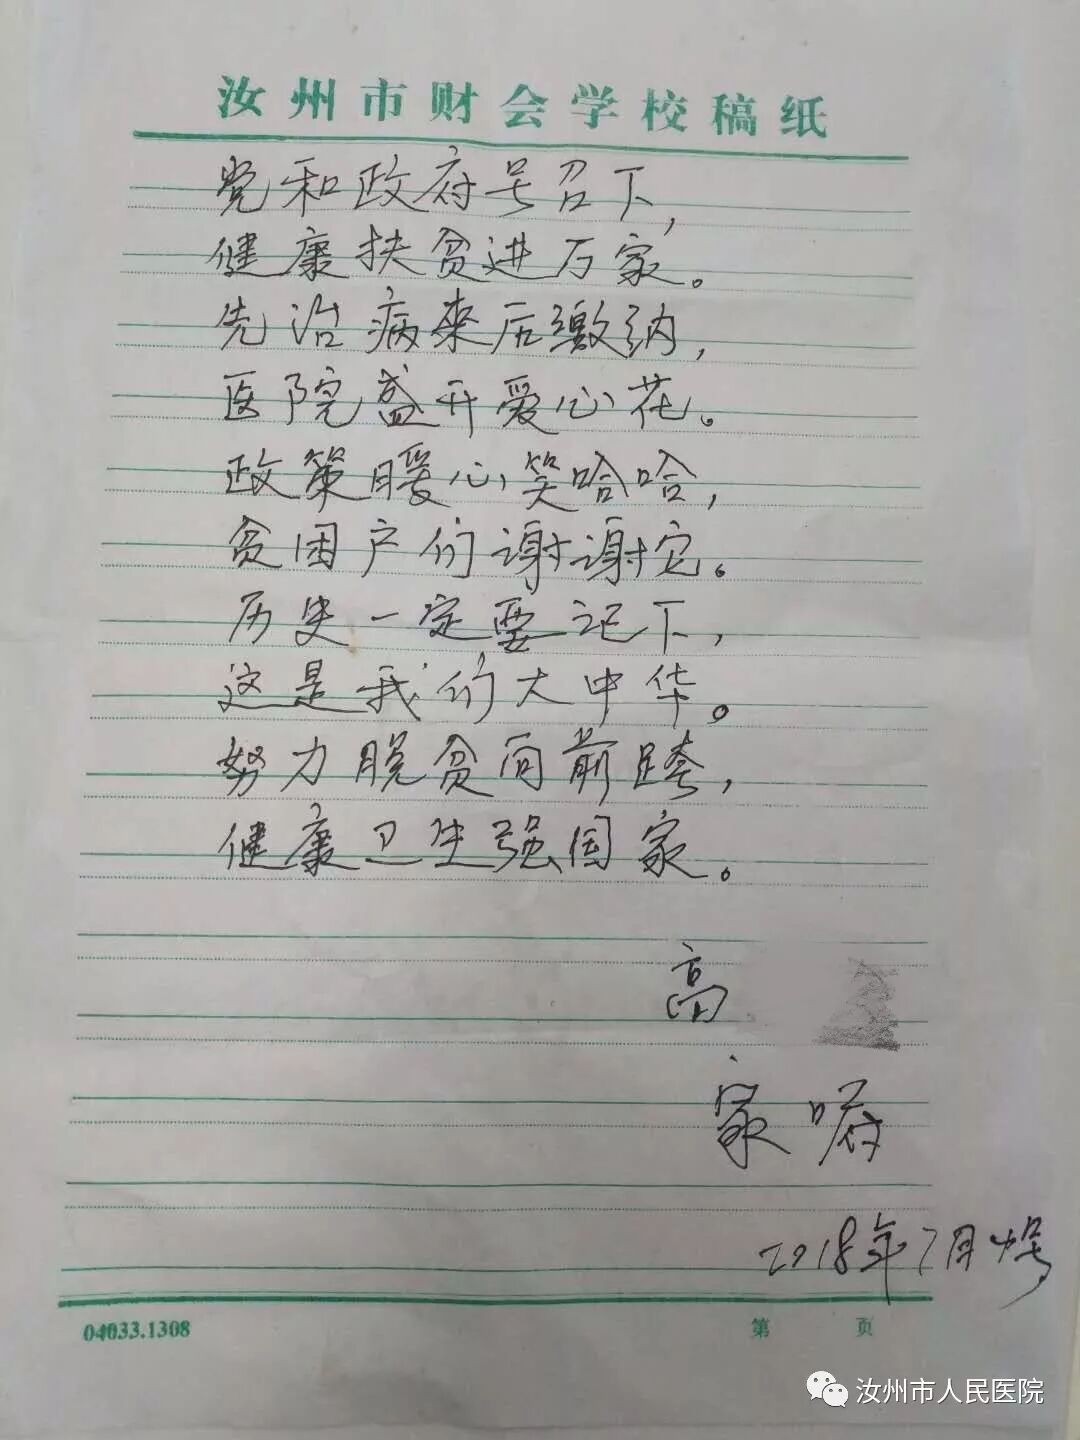 汝州市财会学校稿纸
党和政府号召下，
健康扶贫进万家。
先治病来后缴纳，
医院盛开爱心花。
政策暖心笑哈哈，
贫困户们谢谢它。
历史一定要记下，
这是我们大中华。
努力脱贫向前跨，
健康卫生强国家。
高
家嘱
2018年7月
04033.1308
第 页
汝州市人民医院